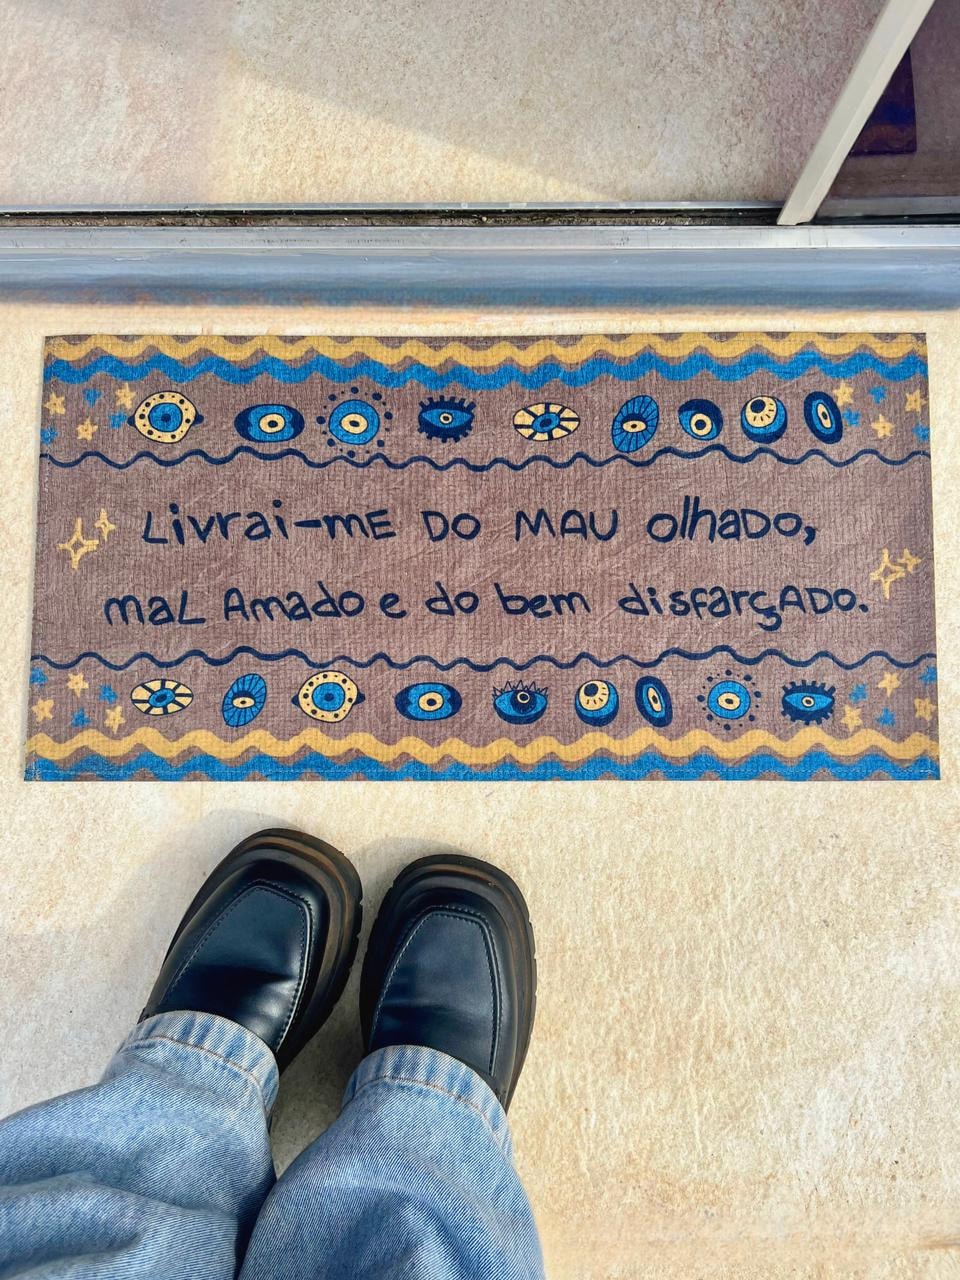 Livrai-mE DO MAU olhaDO,
maL Amado e do bem disfarçADO.